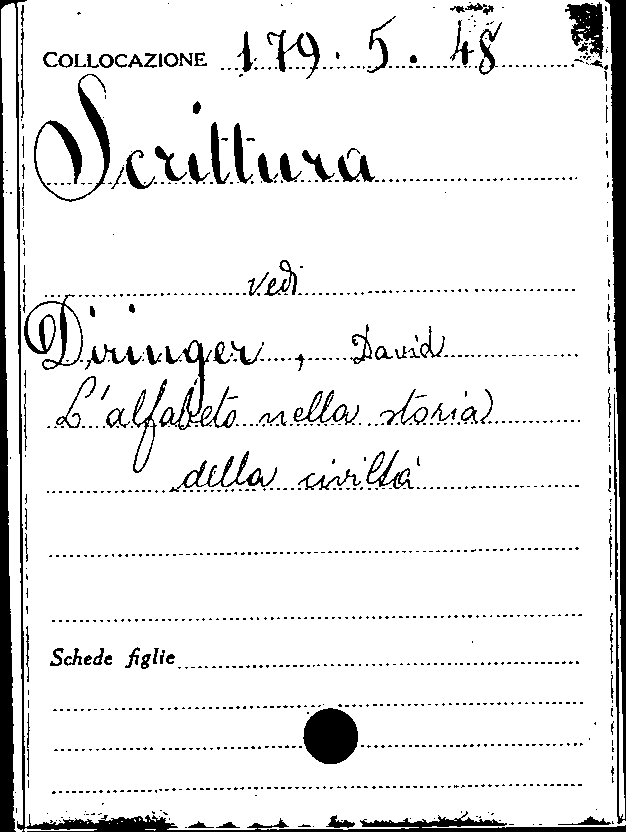 COLLOCAZIONE 179. 5. 48
Scrittura
vedi
Diringer, David
L'alfabeto nella storia
della civiltà
Schede figlie